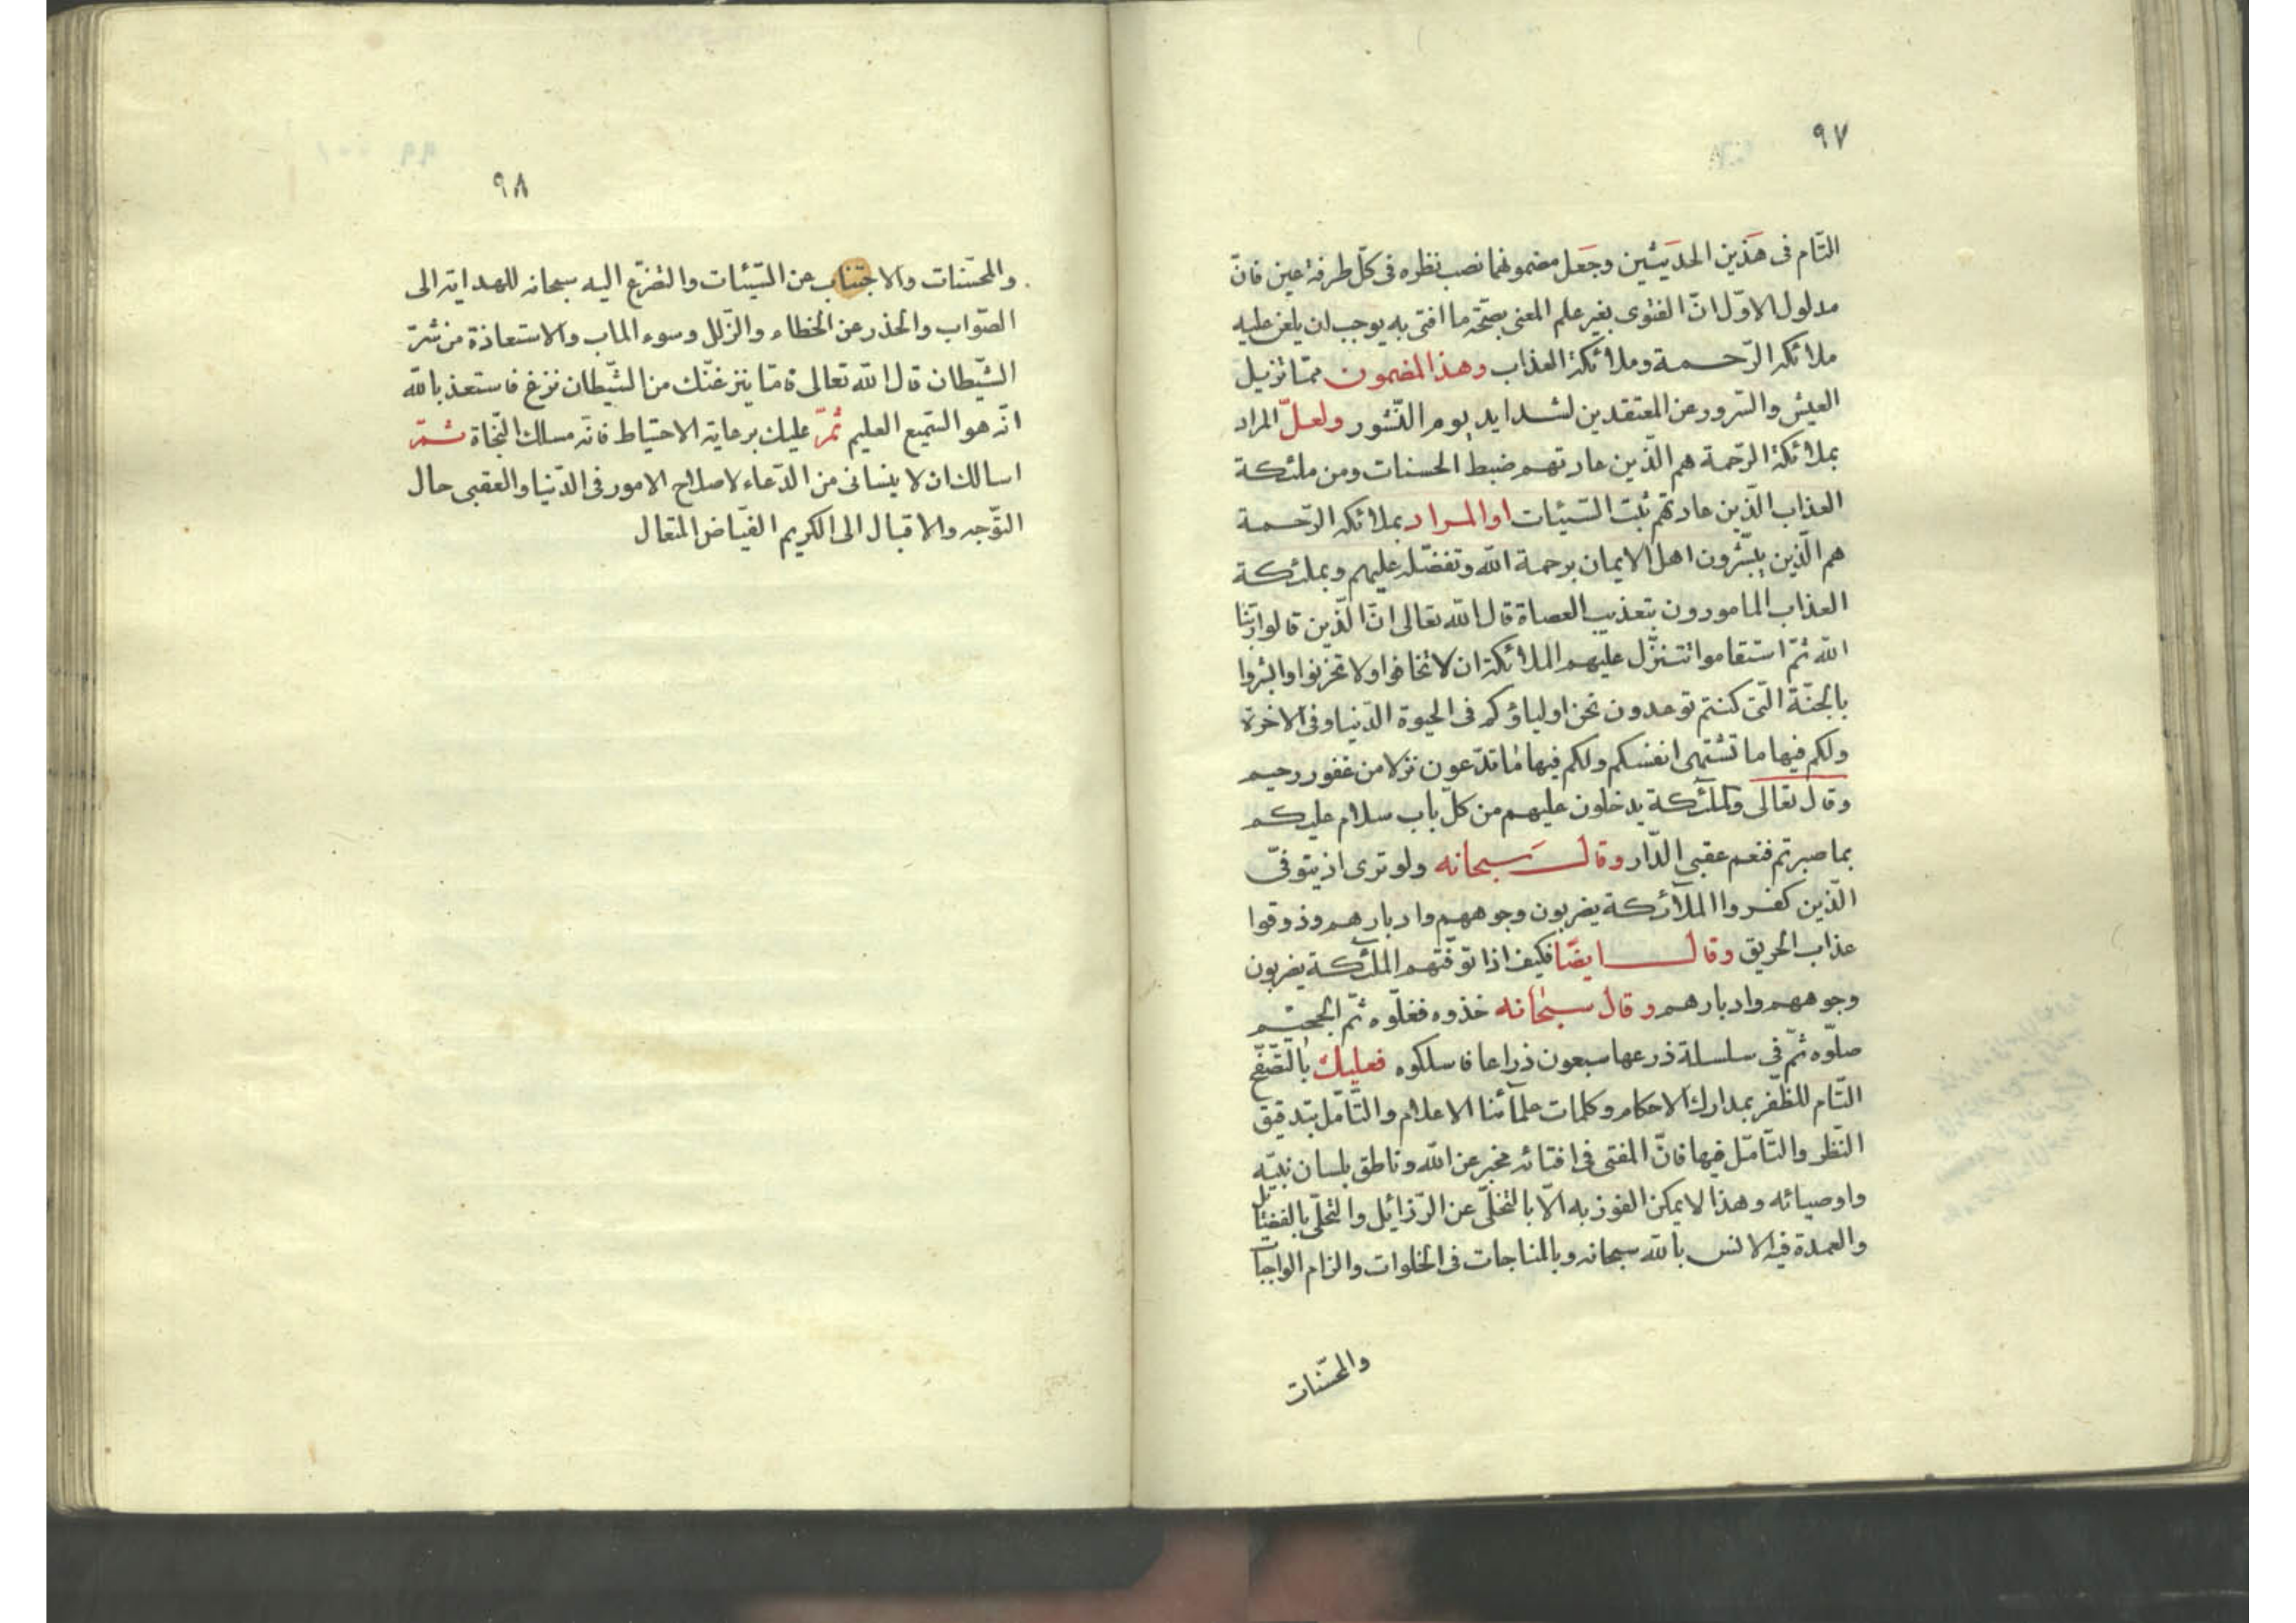 ٩٧
التّام فى هَذين الحدَيثين وجَعل مضمونهما نصب نظره فى كلّ طرفة عين فانّ
مدلول الاوّل انّ الفتوى بغير علم المعنى بصحّة ما افتى به يوجب ان يلعن عليه
ملائكة الرّحمة وملائكة العذاب وهذا المضمون ممّا تزيل
العيش والسّرور عن المعتقدين لشدايد يوم النّشور ولعلّ المراد
بملائكة الرّحمة هم الّذين عادتهم ضبط الحسنات ومن ملئكة
العذاب الّذين عادتهم ثبت السّيئات او المراد بملائكة الرّحمة
هم الّذين يبشّرون اهل الايمان برحمة الله وتفضّله عليهم وبملئكة
العذاب المامورون بتعذيب العصاة قال الله تعالى انّ الّذين قالوا ربّنا
الله ثمّ استقاموا تتنزّل عليهم الملائكة ان لا تخافوا ولا تحزنوا وابشروا
بالجنّة الّتى كنتم توعدون نحن اولياؤكم فى الحيوة الدّنيا وفى الاخرة
ولكم فيها ما تشتهى انفسكم ولكم فيها ما تدّعون نزلا من غفور رحيم
وقال تعالى والملئكة يدخلون عليهم من كلّ باب سلام عليكم
بما صبرتم فنعم عقبى الدّار وقال سبحانه ولو ترى اذ يتوفّى
الّذين كفروا الملآئكة يضربون وجوههم وادبارهم وذوقوا
عذاب الحريق وقال ايضًا فكيف اذا توفّتهم الملئكة يضربون
وجوههم وادبارهم وقال سبحانه خذوه فغلّوه ثمّ الجحيم
صلّوه ثمّ فى سلسلة ذرعها سبعون ذراعا فاسلكوه فعليك بالتّصفّح
التّام للظّفر بمدارك الاحكام وكلمات علمآئنا الاعلام والتّأمّل بتدقيق
النّظر والتّأمّل فيها فانّ المفتى فى افتائه مخبر عن الله وناطق بلسان نبيّه
واوصيائه وهذا لا يمكن الفوز به الّا بالتخلّى عن الرّزائل والتحلّى بالفضائل
والعمدة فيه الانس بالله سبحانه وبالمناجات فى الخلوات والزام الواجبات
والمحسّنات
٩٨
والمحسّنات والاجتناب عن السّيّئات والتضرّع اليه سبحانه للهداية الى
الصّواب والحذر عن الخطاء والزّلل وسوء الماب والاستعاذة من شرّ
الشّيطان قال الله تعالى فامّا ينزغنّك من الشّيطان نزغ فاستعذ بالله
انّه هو السّميع العليم ثمّ عليك برعاية الاحتياط فانّه مسلك النّجاة ثمّ
اسالك ان لا ينسانى من الدّعاء لاصلاح الامور فى الدّنيا والعقبى حال
التوّجه والاقبال الى الكريم الفيّاض المتعال